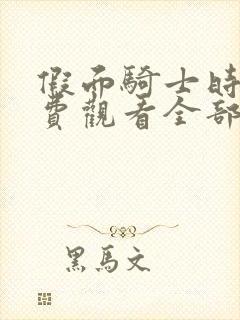 假面騎士時
費觀看全部
黑馬文